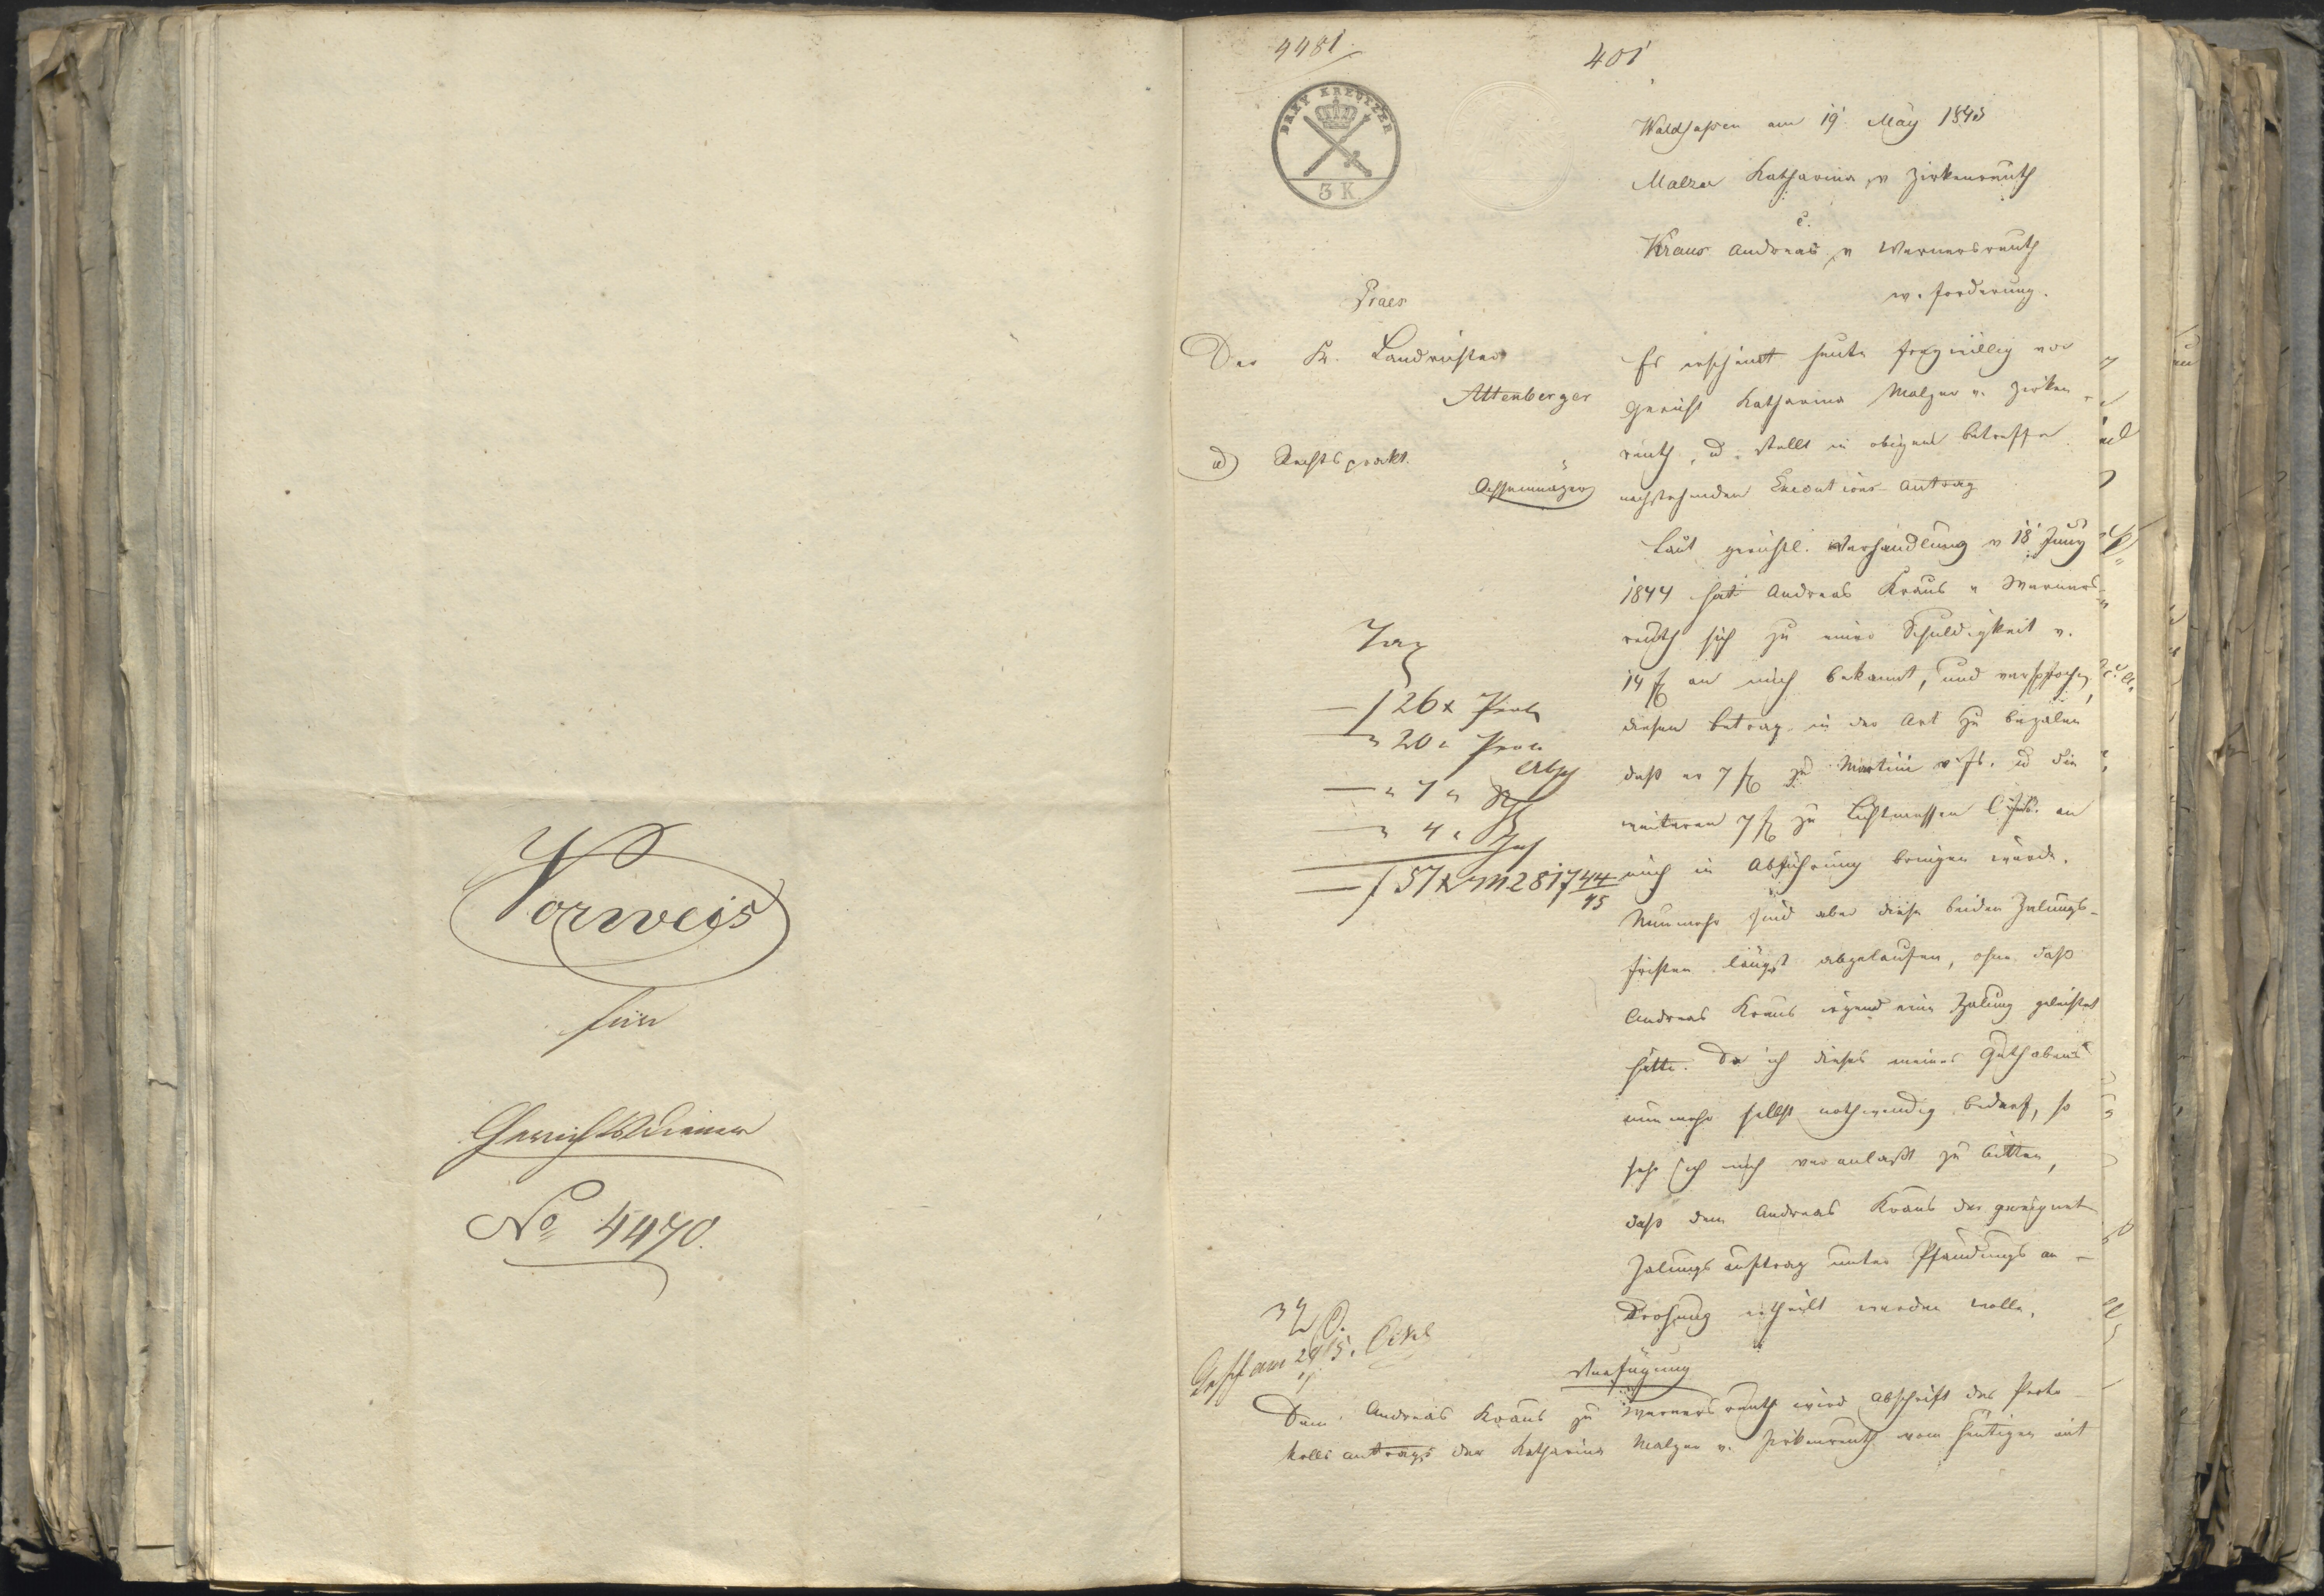 Vorweis
für
Gerichtsdiener
No 4470.
4481.
401
DREY KREUTZER
3 K.
Waldsassen am 19 May 1845
Malzer Katharina v Zirkenreuth
c.
Kraus Andreas v Wernersreuth
w. Forderung.
Praes
Der K. Landrichter
Attenberger
d Rechtsprakt.
Es erscheint heute freywillig vor
Gericht Katharina Malzer v. Zirken-
reuth, u. stellt in obigem Betreffe
nachstehenden Executions-Antrag
Laut gerichtl. Verhandlung v 18 Juny
1844 hat Andreas Kraus v Werners-
reuth sich zu einer Schuldigkeit v.
14 f an mich bekannt, und versprochen,
diesen Betrag in der Art zu bezalen
daß er 7 f zu Martini v. Js. u die
weiteren 7 f zu Lichtmessen l. Js. an
mich in Abführung bringen würde.
Nunmehr sind aber diese beiden Zalungs-
fristen längst abgelaufen, ohne daß
Andreas Kraus irgend eine Zalung geleistet
hätte. Da ich dieses meines Guthabens
nunmehr selbst nothwendig bedarf, so
sehe ich mich veranlaßt zu bitten,
daß dem Andreas Kraus der geeignet
Zalungsauftrag unter Pfändungs an-
drohung ertheilt werden wolle.
Tax
— f 26 x Prot
— " 20 " 
— " 7 "
— " 4 "
— f 57 x 2817 44/45
Verfügung
Dem Andreas Kraus zu Wernersreuth wird Abschrift des Proto-
kolls antrags der Katharina Malzer v. Zirkenreuth vom Heutigen mit